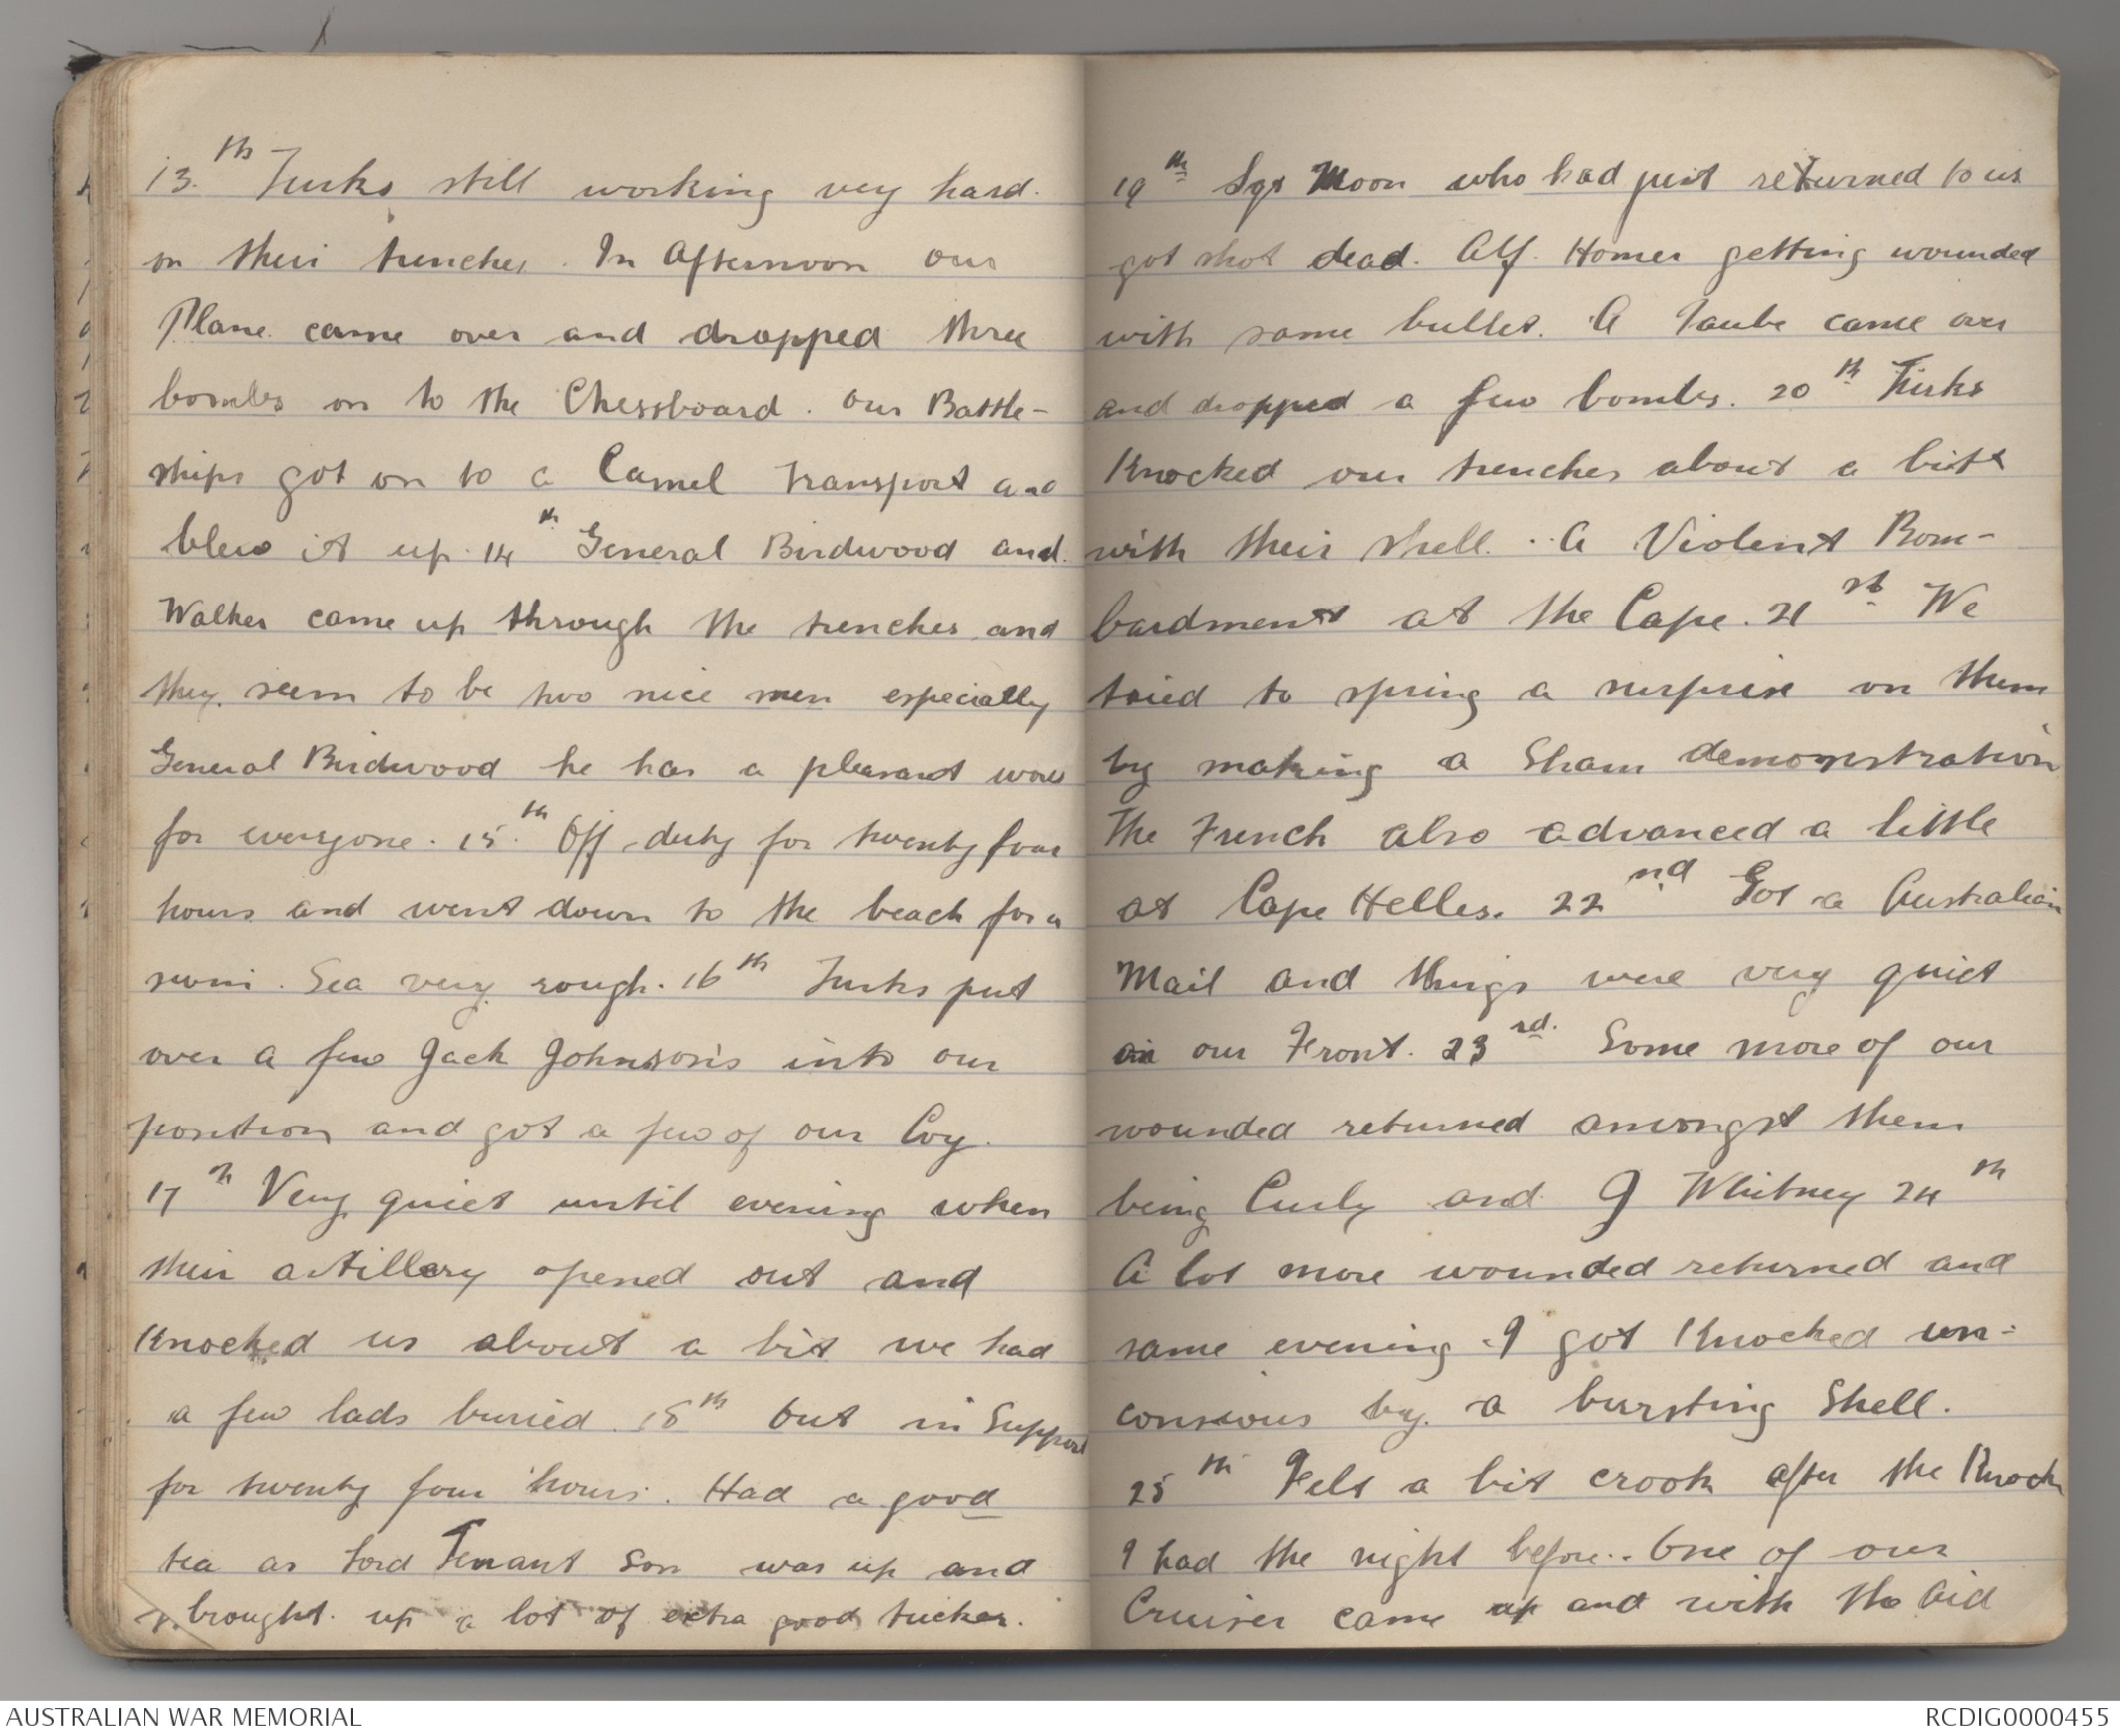 13.th Turks still working very hard.
on their trenches. In Afternoon our
Plane. came over and dropped three
bombs on to the Chessboard. Our Battle-
ships got on to a Camel transport and
blew it up. 14th General Birdwood and.
Walker came up through the trenches and
they. seem to be two nice men especially
General Birdwood he has a pleasant word
for everyone. 15.th Off duty for twenty four
hours and went down to the beach for a
swim. Sea very rough. 16th Turks put
over a few Jack Johnson's into our
position and got a few of our Coy.
17th Very quiet until evening when
their artillery opened out and
Knocked us about a bit we had
a few lads buried. 18th Out in Support
for twenty four hours. Had a good
tea as Lord Tenant Son was up and
brought. up a lot of extra good tucker.
19th Sgt Moon who had just returned to us
got shot dead. Alf. Homer getting wounded
with same bullet. A Taube came over
and dropped a few bombs. 20th Turks
Knocked our trenches about a bit
with their shell. A Violent Bom-
bardment at the Cape. 21st We
tried to spring a surprise on them
by making a Sham demonstration
The French also advanced a little
at Cape Helles. 22nd Got a Australian
Mail and things were very quiet
on our Front. 23rd. Some more of our
wounded returned amongst them
being Curly and J Whitney 24th
A lot more wounded returned and
same evening I got Knocked un-
conscious by. a bursting Shell.
25th Felt a bit crook after the Knock
I had the night before. One of our
Cruiser came up and with the aid
AUSTRALIAN WAR MEMORIAL
RCDIG0000455